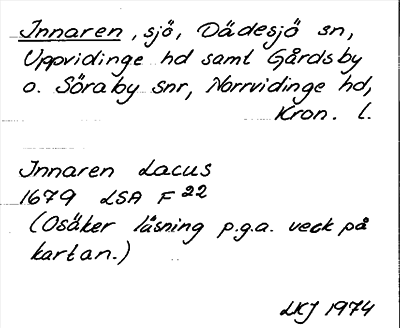 Innaren, sjö, Dädesjö sn,
Uppvidinge hd samt Gårdsby
o. Söraby snr, Norrvidinge hd,
Kron. l.
Innaren Lacus
1679 LSA F 22
(Osäker läsning p.g.a. veck på
kartan.)
LKJ 1974